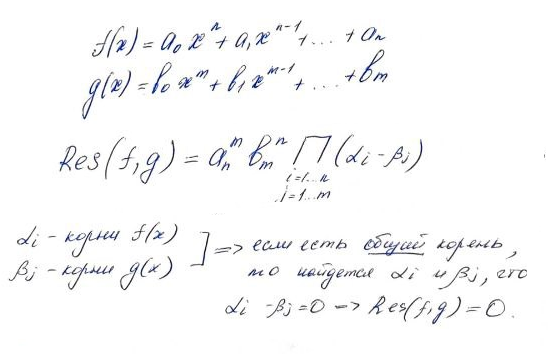 f(x) = a₀xⁿ + a₁xⁿ⁻¹ + ... + aₙ
g(x) = b₀xᵐ + b₁xᵐ⁻¹ + ... + bₘ
Res(f,g) = aₙᵐ bₘⁿ ∏ (αᵢ - βⱼ)
i=1...n
j=1...m
αᵢ - корни f(x)
βⱼ - корни g(x) ] => если есть общий корень,
то найдется αᵢ и βⱼ, что
αᵢ - βⱼ = 0 => Res(f,g) = 0.